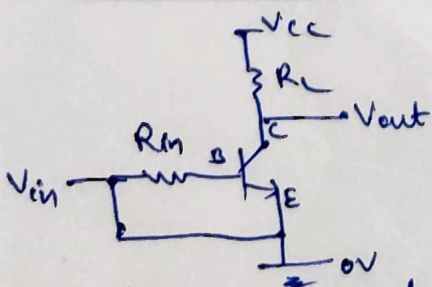 Vcc
RL
C
Vout
Rin
B
Vin
E
0V